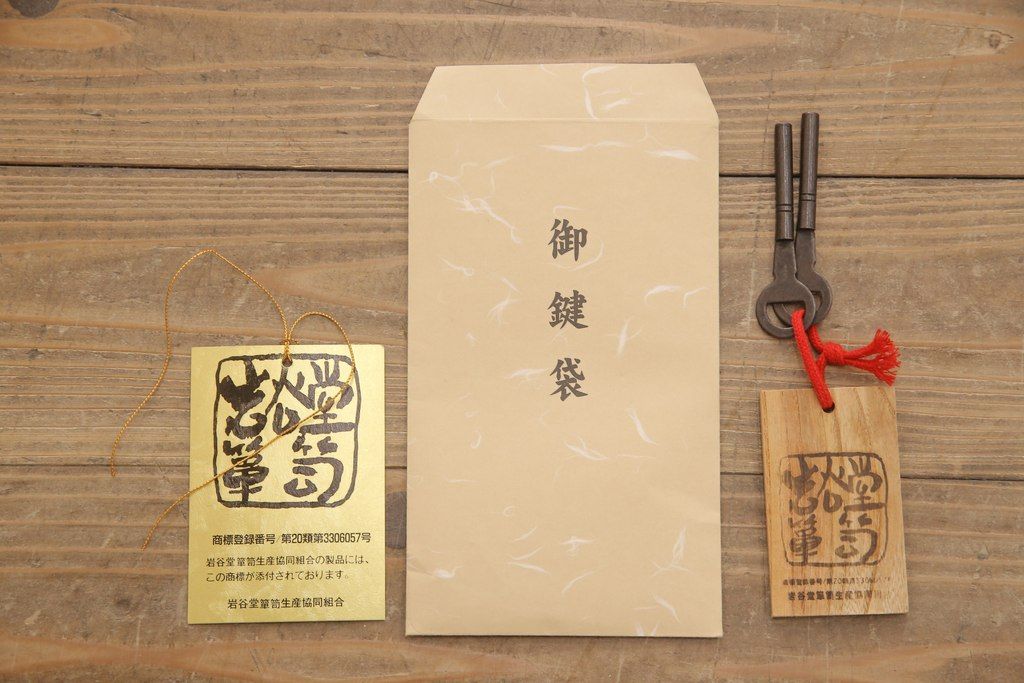 岩谷堂
簞笥
商標登録番号/第20類第3306057号
岩谷堂簞笥生産協同組合の製品には、
この商標が添付されております。
岩谷堂簞笥生産協同組合
御鍵袋
岩谷堂
簞笥
商標登録番号/第20類第330
岩谷堂簞笥生産協同